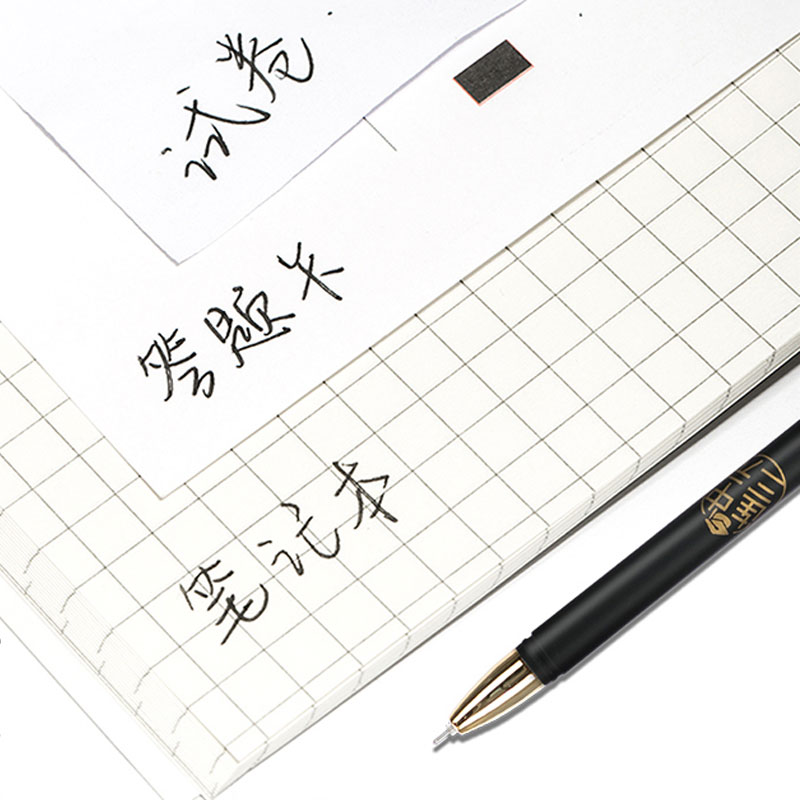 试卷
答题卡
笔记本